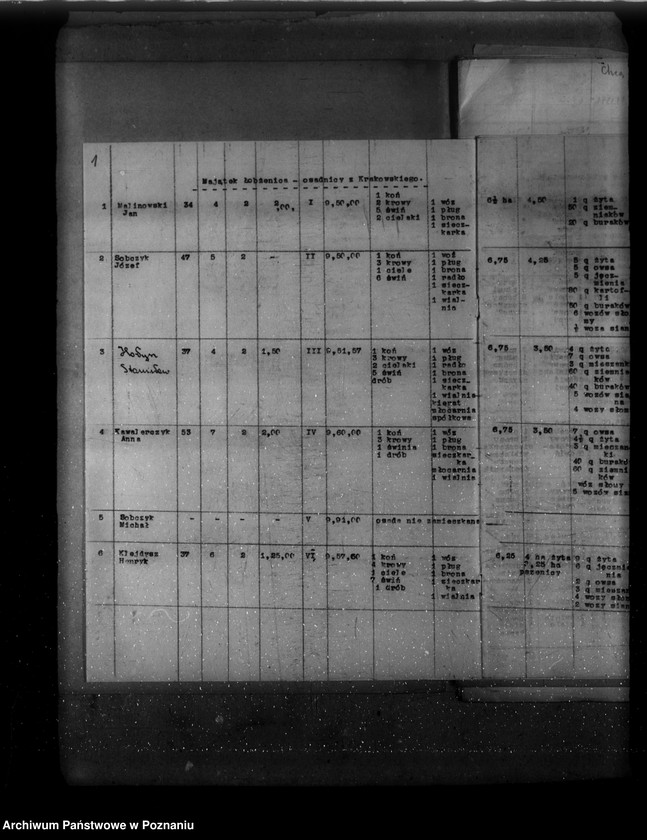 Chea
1
Majątek Łobżenica - osadnicy z Krakowskiego.
1 Malinowski 34 4 2 2,00, I 9,50,00 1 koń 1 wóz 6½ ha 4,50 1 q żyta
Jan 2 krowy 1 pług 50 q ziem-
5 świń 1 brona niaków
2 cielaki 1 siecz- 20 q buraków
karka
2 Sobczyk 47 5 2 - II 9,50,00 1 koń 1 woź 6,75 4,25 5 q żyta
Józef 3 krowy 1 pług 5 q owsa
1 ciele 1 brona 5 q jęcz-
6 świń 1 radło mienia
1 siecz- 80 q kartof-
karka li
1 wial- 50 q buraków
nia 6 wozów sło
my
½ woza sian
3 Hodyn 37 4 2 1,50 III 9,51,57 1 koń 1 wóz 6,75 3,50 4 q żyta
Stanisław 3 krowy 1 pług 7 q owsa
2 cielaki 1 radło 3 q mieszank
5 świń 1 brona 60 q ziemnia
drób 1 siecz- ków
karka 40 q buraków
1 wialnia 5 wozów sia
kierat na
młocarnia 4 wozy słom
spółkowa
4 Kawalerczyk 53 7 2 2,00 IV 9,60,00 1 koń 1 wóz 6,75 3,50 7 q owsa
Anna 3 krowy 1 pług 4½ q żyta
1 świnia 1 brona 3 q mieszan
1 drób sieczkar- ki
ka 40 q burakó
młocarnia 60 q ziemni
1 wialnie ków
wóz słomy
5 wozów sia
5 Sobczyk - - - - V 9,91,00 osada nie zamieszkana
Michał
6 Klejdysz 37 6 2 1,25,00 VI, 9,57,60 1 koń 1 wóz 6,25 4 ha żyta 9 q żyta
Henryk 4 krowy 1 pług 0,25 ha 6 q jęczmie
1 ciele 1 brona pszenicy nia
7 świń 1 sieczkar 2 q owsa
1 drób ka 3 q mieszan
1 wialnia 4 wozy słom
2 wozy sian
Archiwum Państwowe w Poznaniu